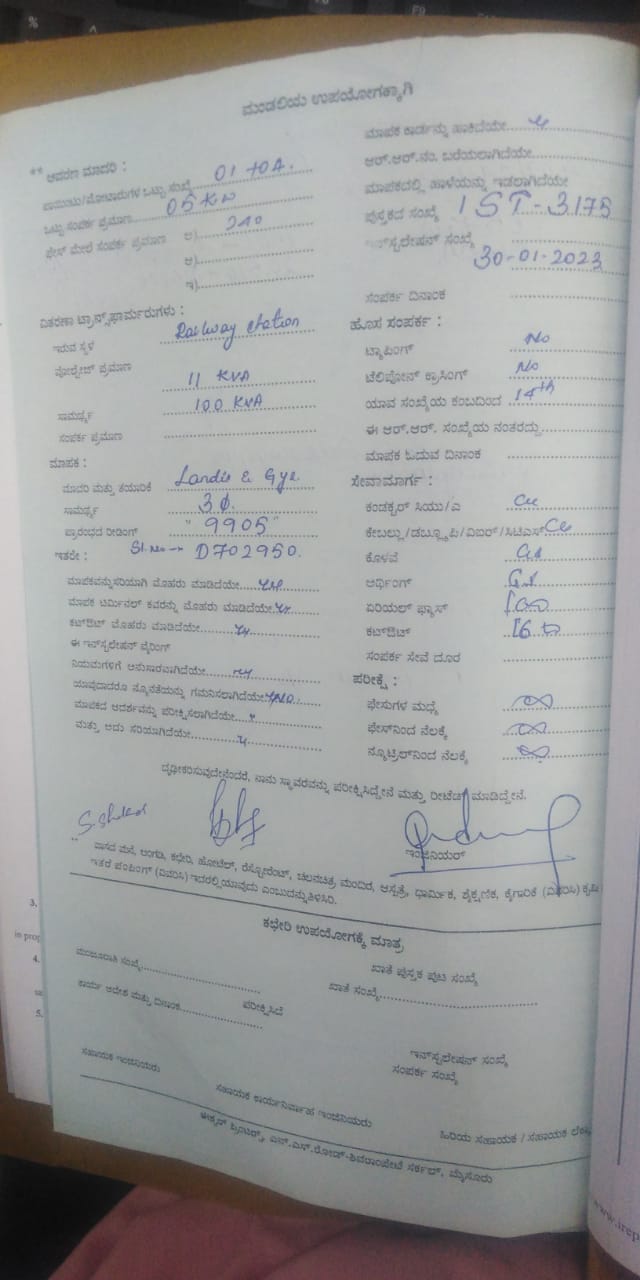 ಮಂಡಲಿಯ ಉಪಯೋಗಕ್ಕಾಗಿ
** ಆವರಣ ಮಾದರಿ :
ಪಾಯಿಂಟು/ಮೋಟಾರುಗಳ ಒಟ್ಟು ಸಂಖ್ಯೆ 01
ಒಟ್ಟು ಸಂಪರ್ಕ ಪ್ರಮಾಣ 05 KW
ಫೇಸ್ ಮೇಲೆ ಸಂಪರ್ಕ ಪ್ರಮಾಣ ಅ) 240
ಆ)
ಇ)
ವಿತರಣಾ ಟ್ರಾನ್ಸ್‌ಫಾರ್ಮರುಗಳು :
ಇರುವ ಸ್ಥಳ Railway station
ವೋಲ್ಟೇಜ್ ಪ್ರಮಾಣ 11 KVA
ಸಾಮರ್ಥ್ಯ 100 KVA
ಸಂಪರ್ಕ ಪ್ರಮಾಣ
ಮಾಪಕ :
ಮಾದರಿ ಮತ್ತು ತಯಾರಿಕೆ Landis & Gye
ಸಾಮರ್ಥ್ಯ 3 Ø.
ಪ್ರಾರಂಭದ ರೀಡಿಂಗ್ " 9905 "
ಇತರೇ : Sl.No → D702950.
ಮಾಪಕವನ್ನು ಸರಿಯಾಗಿ ಮೊಹರು ಮಾಡಿದೆಯೇ
ಮಾಪಕ ಟರ್ಮಿನಲ್ ಕವರನ್ನು ಮೊಹರು ಮಾಡಿದೆಯೇ
ಕಟ್‌ಔಟ್ ಮೊಹರು ಮಾಡಿದೆಯೇ
ಈ ಇನ್‌ಸ್ಟಲೇಷನ್ ವೈರಿಂಗ್
ನಿಯಮಗಳಿಗೆ ಅನುಸಾರವಾಗಿದೆಯೇ
ಯಾವುದಾದರೂ ನ್ಯೂನತೆಯನ್ನು ಗಮನಿಸಲಾಗಿದೆಯೇ NO.
ಮಾಪಕದ ಆವರ್ತವನ್ನು ಪರೀಕ್ಷಿಸಲಾಗಿದೆಯೇ
ಮತ್ತು ಅದು ಸರಿಯಾಗಿದೆಯೇ
ಮಾಪಕ ಕಾರ್ಡನ್ನು ಹಾಕಿದೆಯೇ
ಆರ್.ಆರ್.ನಂ. ಬರೆಯಲಾಗಿದೆಯೇ
ಮಾಪಕದಲ್ಲಿ ಹಾಳೆಯನ್ನು ಇಡಲಾಗಿದೆಯೇ
ಪುಸ್ತಕದ ಸಂಖ್ಯೆ 1 ST - 3175
ಇನ್‌ಸ್ಟಲೇಷನ್ ಸಂಖ್ಯೆ
30-01-2023
ಸಂಪರ್ಕ ದಿನಾಂಕ
ಹೊಸ ಸಂಪರ್ಕ :
ಟ್ಯಾಪಿಂಗ್ No
ಟೆಲಿಪೋನ್ ಕ್ರಾಸಿಂಗ್ No
ಯಾವ ಸಂಖ್ಯೆಯ ಕಂಬದಿಂದ 14th
ಈ ಆರ್.ಆರ್. ಸಂಖ್ಯೆಯ ನಂತರದ್ದು
ಮಾಪಕ ಓದುವ ದಿನಾಂಕ
ಸೇವಾಮಾರ್ಗ :
ಕಂಡಕ್ಟರ್ ಸಿಯು/ಎ Cu
ಕೇಬಲ್ಲು/ಡಬ್ಲ್ಯೂಪಿ/ವಿಐರ್/ಸಿಟಿಎಸ್ Cu
ಕೊಳವೆ GI
ಅರ್ಥಿಂಗ್ GI
ಏರಿಯಲ್ ಫ್ಯೂಸ್
ಕಟ್‌ಔಟ್
ಸಂಪರ್ಕ ಸೇವೆ ದೂರ
ಪರೀಕ್ಷೆ :
ಫೇಸುಗಳ ಮಧ್ಯೆ ∞
ಫೇಸ್‌ನಿಂದ ನೆಲಕ್ಕೆ ∞
ನ್ಯೂಟ್ರಲ್‌ನಿಂದ ನೆಲಕ್ಕೆ ∞
ದೃಢೀಕರಿಸುವುದೇನೆಂದರೆ, ನಾನು ಸ್ಥಾವರವನ್ನು ಪರೀಕ್ಷಿಸಿದ್ದೇನೆ ಮತ್ತು ರೀಟೆಡ್ ಮಾಡಿದ್ದೇನೆ.
ಇಂಜಿನಿಯರ್
** ವಾಸದ ಮನೆ, ಅಂಗಡಿ, ಕಛೇರಿ, ಹೋಟೆಲ್, ರೆಸ್ಟೋರೆಂಟ್, ಚಲನಚಿತ್ರ ಮಂದಿರ, ಆಸ್ಪತ್ರೆ, ಧಾರ್ಮಿಕ, ಶೈಕ್ಷಣಿಕ, ಕೈಗಾರಿಕೆ (ವಿವರಿಸಿ) ಕೃಷಿ
ಇತರೆ ಪಂಪಿಂಗ್ (ವಿವರಿಸಿ) ಇದರಲ್ಲಿ ಯಾವುದು ಎಂಬುದನ್ನು ತಿಳಿಸಿರಿ.
ಕಛೇರಿ ಉಪಯೋಗಕ್ಕೆ ಮಾತ್ರ
ಮಂಜೂರಾತಿ ಸಂಖ್ಯೆ
ಖಾತೆ ಪುಸ್ತಕ ಪುಟ ಸಂಖ್ಯೆ
ಕಾರ್ಯ ಆದೇಶ ಮತ್ತು ದಿನಾಂಕ
ಖಾತೆ ಸಂಖ್ಯೆ
ಪರೀಕ್ಷಿಸಿದೆ
ಇನ್‌ಸ್ಟಲೇಷನ್ ಸಂಖ್ಯೆ
ಸಂಪರ್ಕ ಸಂಖ್ಯೆ
ಸಹಾಯಕ ಇಂಜಿನಿಯರು
ಸಹಾಯಕ ಕಾರ್ಯನಿರ್ವಾಹ ಇಂಜಿನಿಯರು
ಹಿರಿಯ ಸಹಾಯಕ / ಸಹಾಯಕ
ಪ್ರಿಂಟರ್ಸ್, ಎನ್.ಎಸ್.ರೋಡ್-ಶಿವರಾಂಪೇಟೆ ಸರ್ಕಲ್, ಮೈಸೂರು